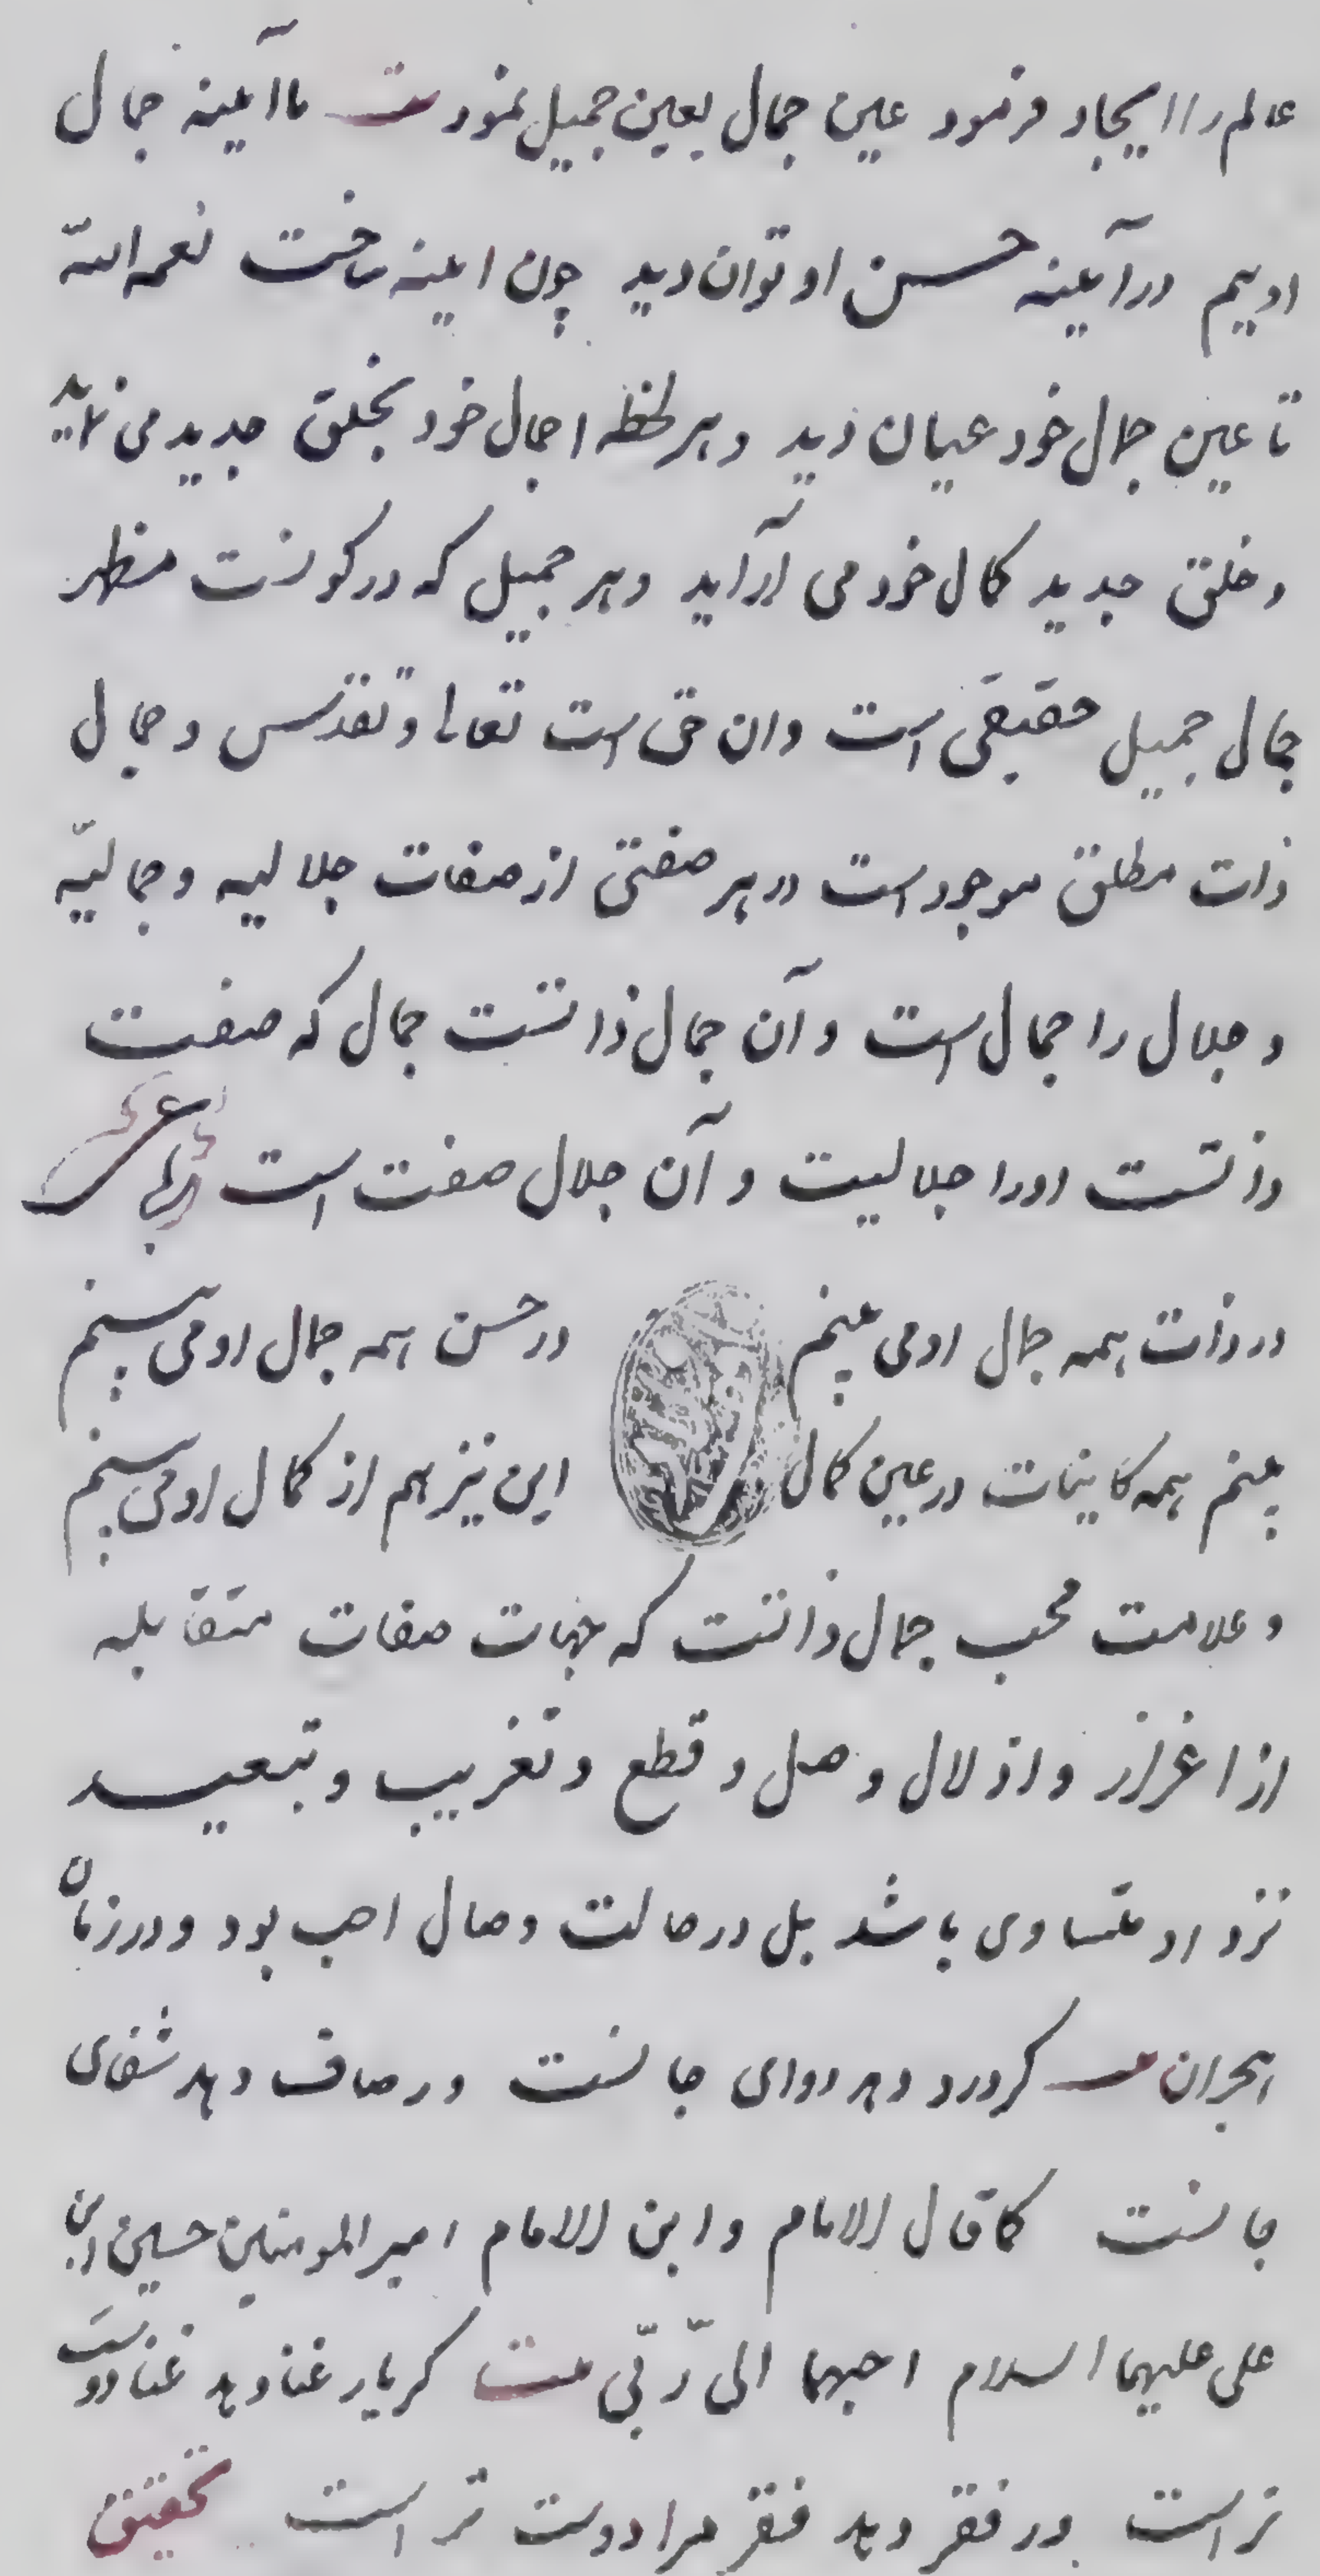 عالم را ایجاد فرمود عین جمال بعین جمیل نمود بیت ما آیینه جمال
اوییم در آیینه حسن او توان دید چون ایینه ساخت نعمه الله
تا عین جمال خود عیان دید و هر لحظه اجمال خود بخلق جدید می نماید
و خلق جدید کمال خود می آراید و هر جمیل که در کونست مظهر
جمال جمیل حقیقی است و ان حق است تعالی و تقدس و جمال
ذات مطلق موجود است در هر صفتی از صفات جلالیه و جمالیّه
و جلال را جمال است و آن جمال ذاتست جمال که صفت
وذاتست اورا جلالیت و آن جلال صفت است رباعی
در ذات همه جمال او می بینم در حسن همه جمال او می بینم
بینم همه کاینات در عین کمال این نیز هم از کمال او می بینم
و علامت محب جمال ذاتست که جهات صفات متقابله
از اعزاز و اذلال وصل و قطع و تغریب و تبعید
نزد او متساوی باشد بل در حالت وصال احب بود و در زمان
هجران بیت کر درد دهد دوای جانست ور صاف دهد شفای
جانست کما قال الامام و ابن الامام امیر المومنین حسین ابن
علی علیهما السلام احبهما الی رّبّی بیت کر یار غنا دهد غنا دوست
تر است ور فقر دهد فقر مرا دوست تر است تحقیق